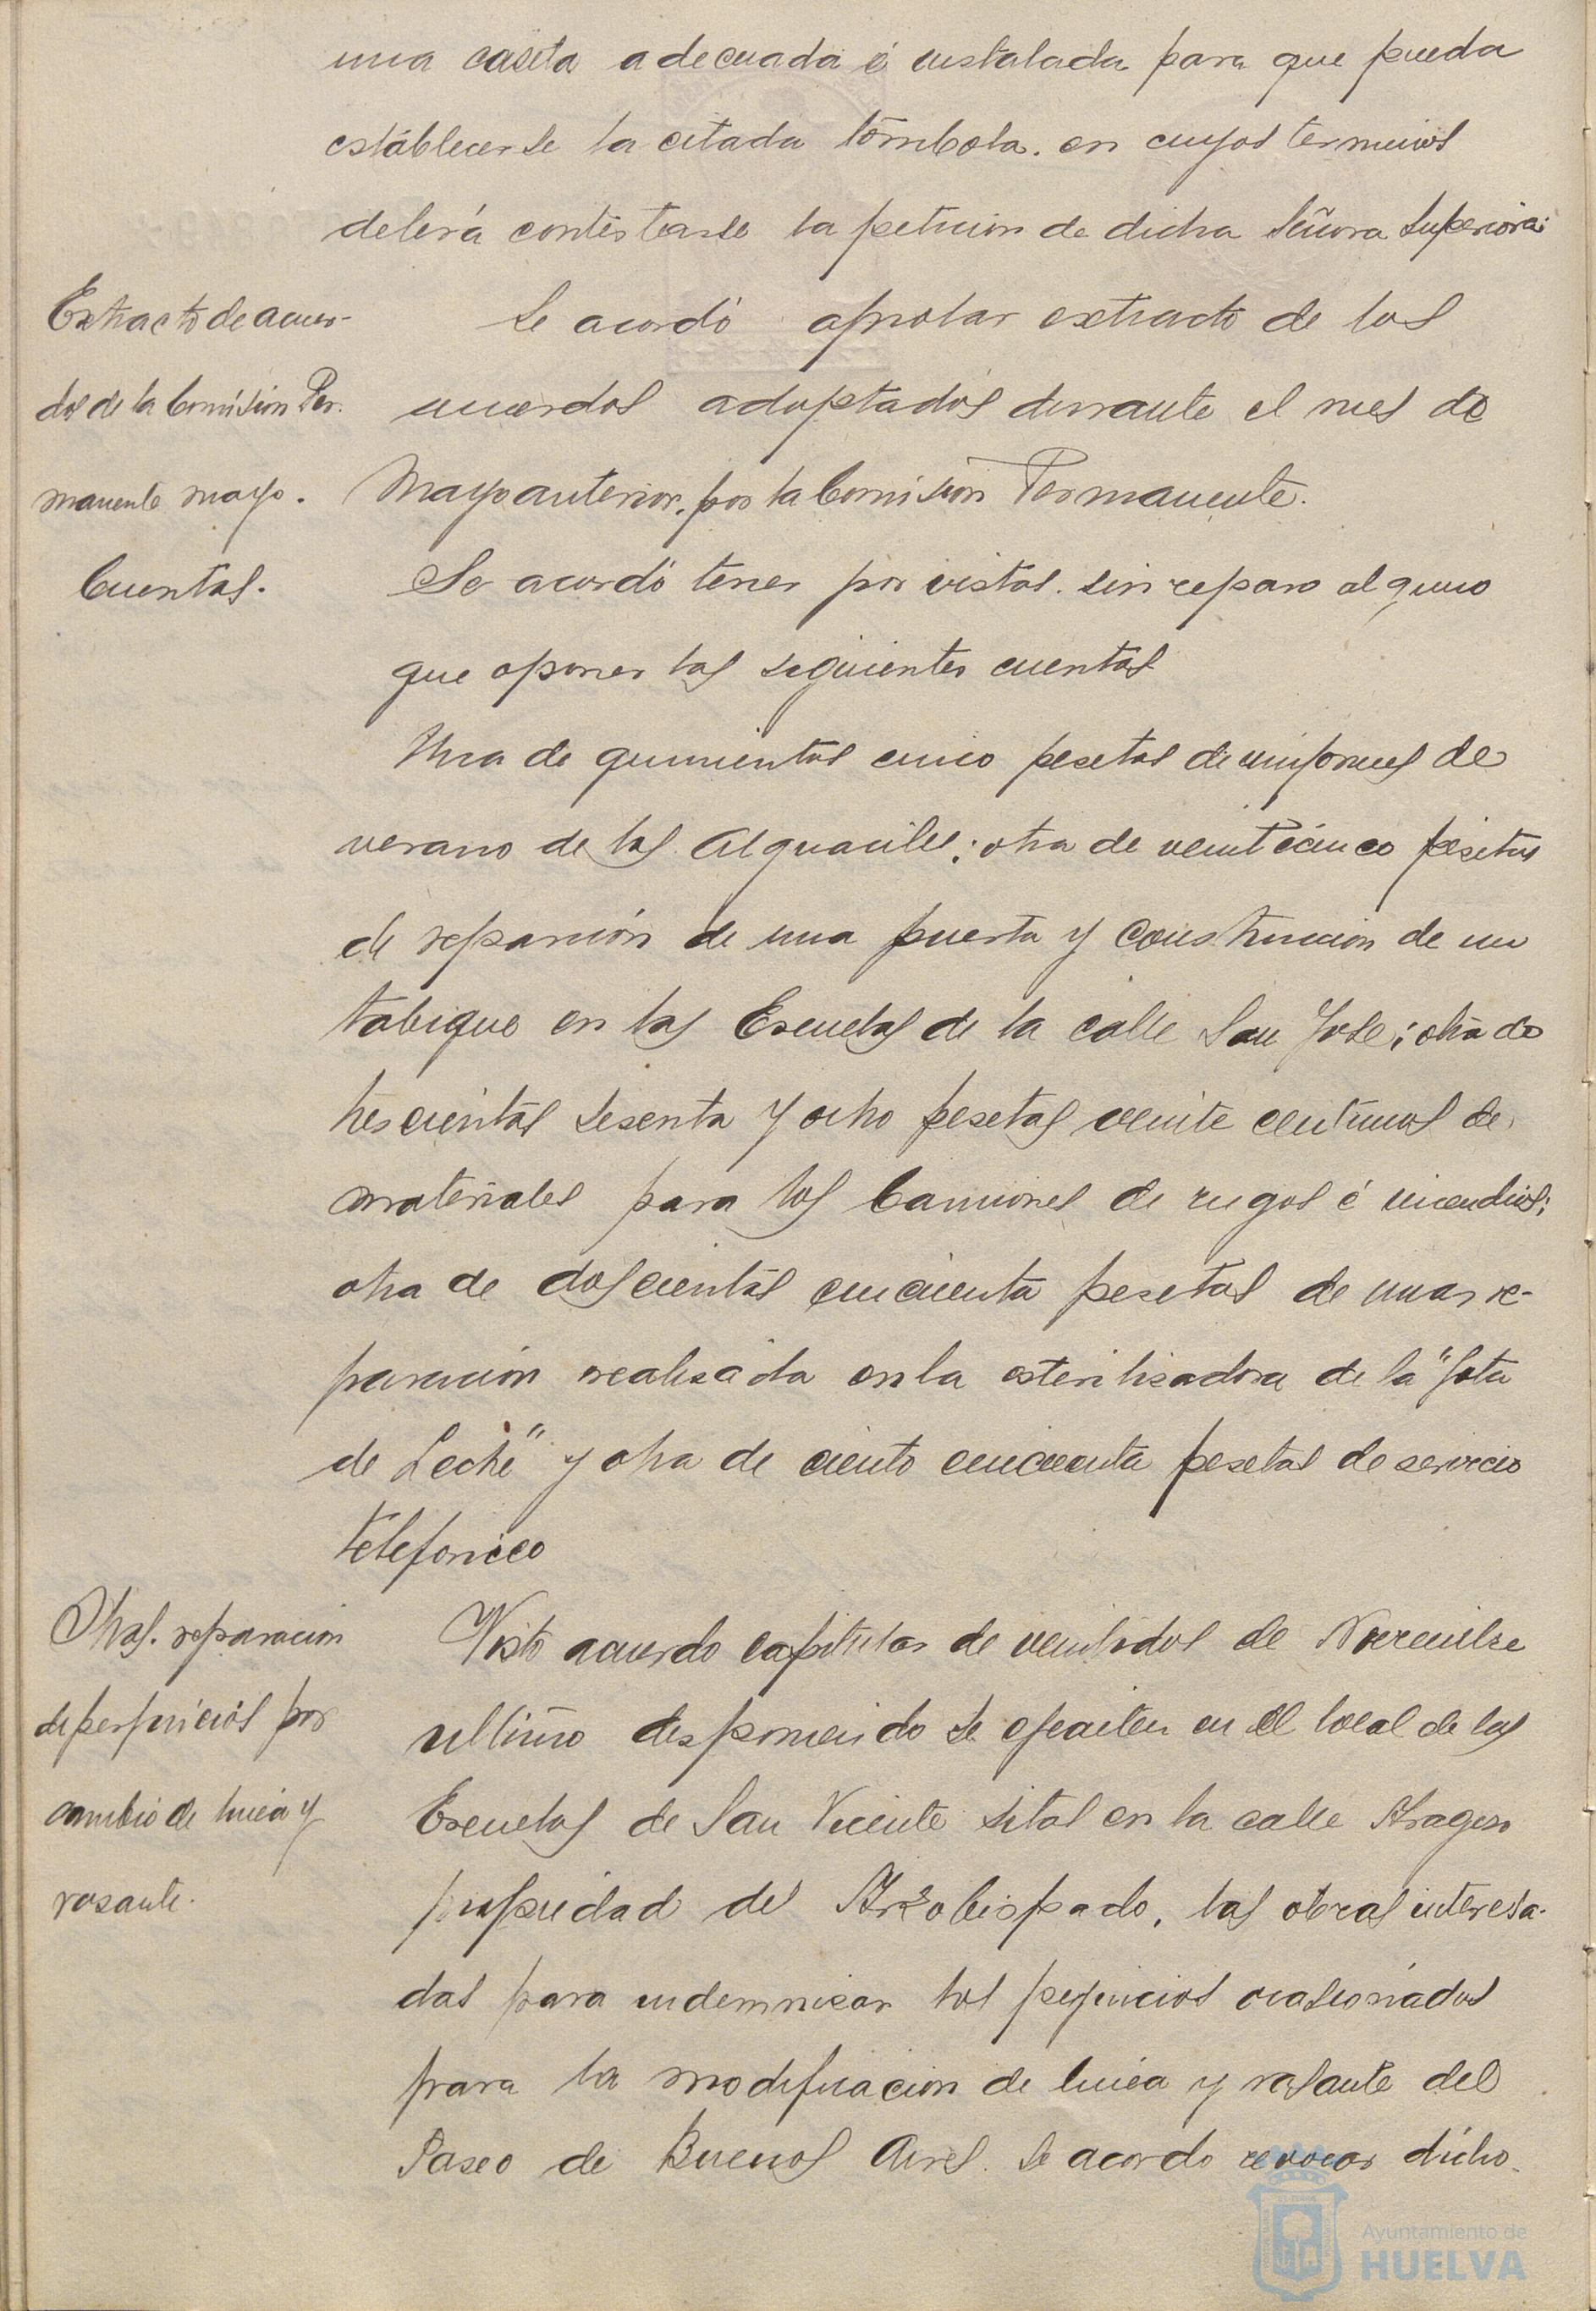 una caseta adecuada é instalada para que pueda
establecerse la citada tómbola. en cuyos terminos
deberá contestarse la peticion de dicha Señora Superiora.
Extracto de acuer-
dos de la Comisión Per.
manente mayo.
Se acordó aprobar extracto de los
acuerdos adoptados durante el mes de
Mayo anterior, por la Comisión Permanente.
Cuentas.
Se acordó tener por vistas. sin reparo alguno
que oponer las siguientes cuentas
Una de quinientas cinco pesetas de uniformes de
verano de los Alguaciles; otra de veinticinco pesetas
de reparación de una puerta y construccion de un
tabique en las Escuelas de la calle San José; otra de
trescientas sesenta y ocho pesetas veinte centimos de
materiales para los Camiones de riegos é incendios;
otra de doscientas cincuenta pesetas de una re-
paración realizada en la esterilizadora de la "Gota
de Leche" y otra de ciento cincuenta pesetas de servicio
telefonico
Obras. reparacion
de perjuicios por
cambio de linea y
rasante.
Visto acuerdo capitular de veintidos de Noviembre
ultimo disponiendo se ejecuten en el local de las
Escuelas de San Vicente sitas en la calle Aragon
propiedad del Arzobispado, las obras interesa-
das para indemnizar los perjuicios ocasionados
para la modificacion de linea y rasante del
Paseo de Buenos Aires. Se acordo revocar dicho
Ayuntamiento de
HUELVA